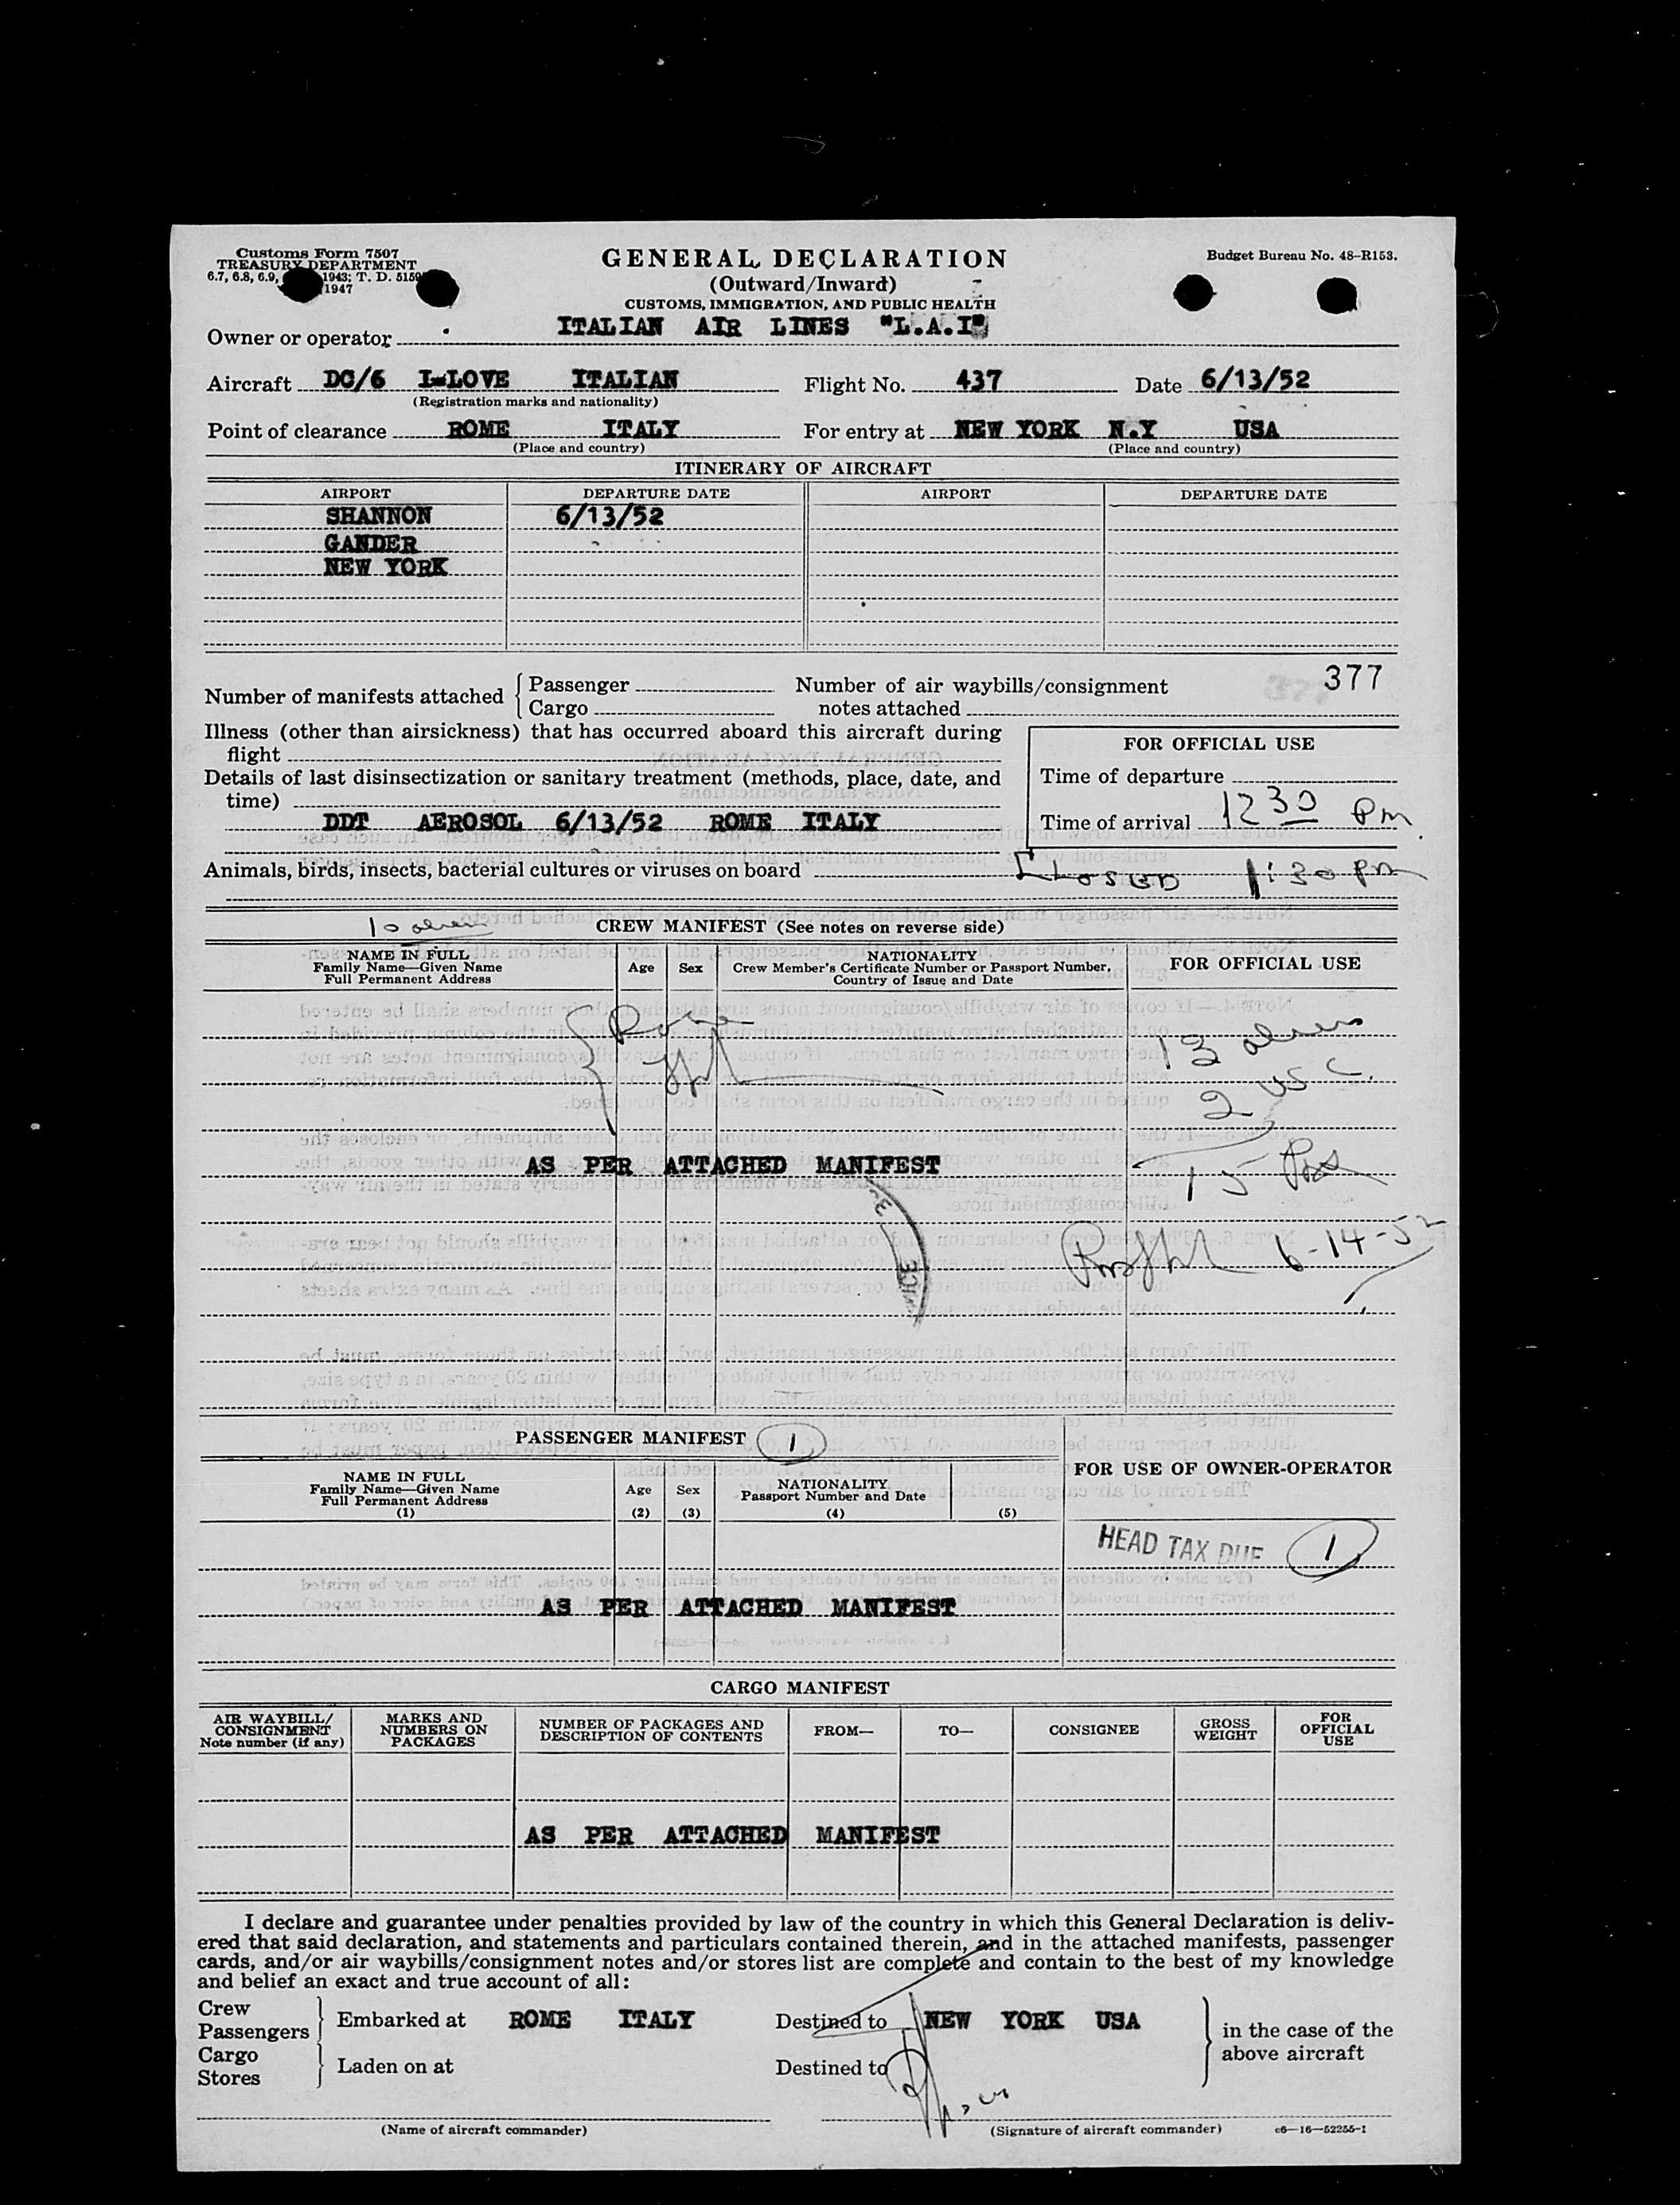 Customs Form 7507
TREASURY DEPARTMENT
6.7, 6.8, 6.9, 1943; T. D. 5159
1947
GENERAL DECLARATION
(Outward/Inward)
CUSTOMS, IMMIGRATION, AND PUBLIC HEALTH
Budget Bureau No. 48–R153.
Owner or operator ITALIAN AIR LINES "L.A.I"
Aircraft DC/6 I-LOVE ITALIAN Flight No. 437 Date 6/13/52
(Registration marks and nationality)
Point of clearance ROME ITALY For entry at NEW YORK N.Y USA
(Place and country) (Place and country)
ITINERARY OF AIRCRAFT
AIRPORT DEPARTURE DATE AIRPORT DEPARTURE DATE
SHANNON 6/13/52
GANDER
NEW YORK
377
Number of manifests attached { Passenger
Cargo
Number of air waybills/consignment
notes attached
Illness (other than airsickness) that has occurred aboard this aircraft during
flight
Details of last disinsectization or sanitary treatment (methods, place, date, and
time)
DDT AEROSOL 6/13/52 ROME ITALY
FOR OFFICIAL USE
Time of departure
Time of arrival 12 30 Pm
Animals, birds, insects, bacterial cultures or viruses on board
CLOSED 1:30 PM
10 aliens
CREW MANIFEST (See notes on reverse side)
NAME IN FULL
Family Name—Given Name
Full Permanent Address
Age Sex
NATIONALITY
Crew Member's Certificate Number or Passport Number,
Country of Issue and Date
FOR OFFICIAL USE
13 aliens
2 USC.
AS PER ATTACHED MANIFEST
15
6-14-52
PASSENGER MANIFEST 1
NAME IN FULL
Family Name—Given Name
Full Permanent Address
(1)
Age
(2)
Sex
(3)
NATIONALITY
Passport Number and Date
(4)
(5)
FOR USE OF OWNER-OPERATOR
HEAD TAX DUE 1
AS PER ATTACHED MANIFEST
CARGO MANIFEST
AIR WAYBILL/
CONSIGNMENT
Note number (if any)
MARKS AND
NUMBERS ON
PACKAGES
NUMBER OF PACKAGES AND
DESCRIPTION OF CONTENTS
FROM—
TO—
CONSIGNEE
GROSS
WEIGHT
FOR
OFFICIAL
USE
AS PER ATTACHED MANIFEST
I declare and guarantee under penalties provided by law of the country in which this General Declaration is deliv-
ered that said declaration, and statements and particulars contained therein, and in the attached manifests, passenger
cards, and/or air waybills/consignment notes and/or stores list are complete and contain to the best of my knowledge
and belief an exact and true account of all:
Crew
Passengers
Cargo
Stores
Embarked at ROME ITALY Destined to NEW YORK USA
Laden on at Destined to
in the case of the
above aircraft
(Name of aircraft commander) (Signature of aircraft commander) c6—16—52255-1